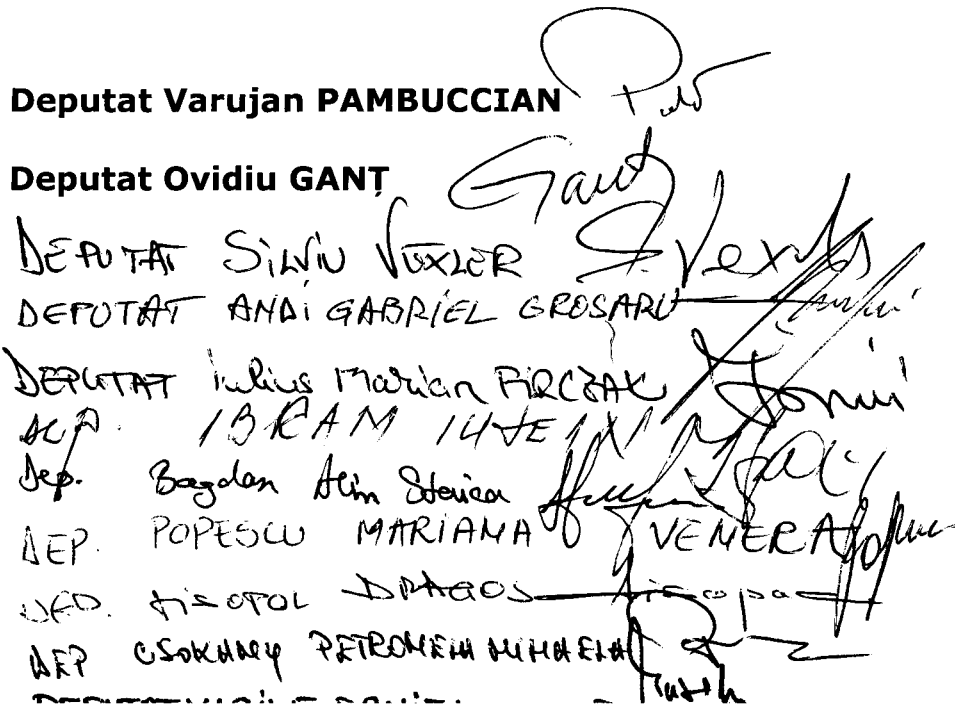 Deputat Varujan PAMBUCCIAN
Deputat Ovidiu GANȚ Gant
DEPUTAT SILVIU VEXLER S.Vexler
DEPUTAT ANDI GABRIEL GROSARU
DEPUTAT Iulius Marian FIRCZAK
IBRAM
Dep. Bogdan Alin Stoica
DEP. POPESCU MARIANA VENERA
DEP. ZISOPOL DRAGOS
DEP CSOKHANY PETRONELA MIHAELA